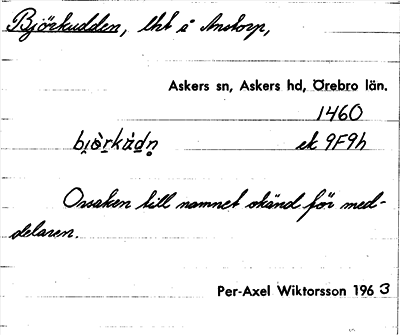 Björkudden, lht å Anstorp,
Askers sn, Askers hd, Örebro län.
1460
bi̯ȯ̀rkàdn̥ ek 9F9h
Orsaken till namnet okänd för med-
delaren.
Per-Axel Wiktorsson 1963